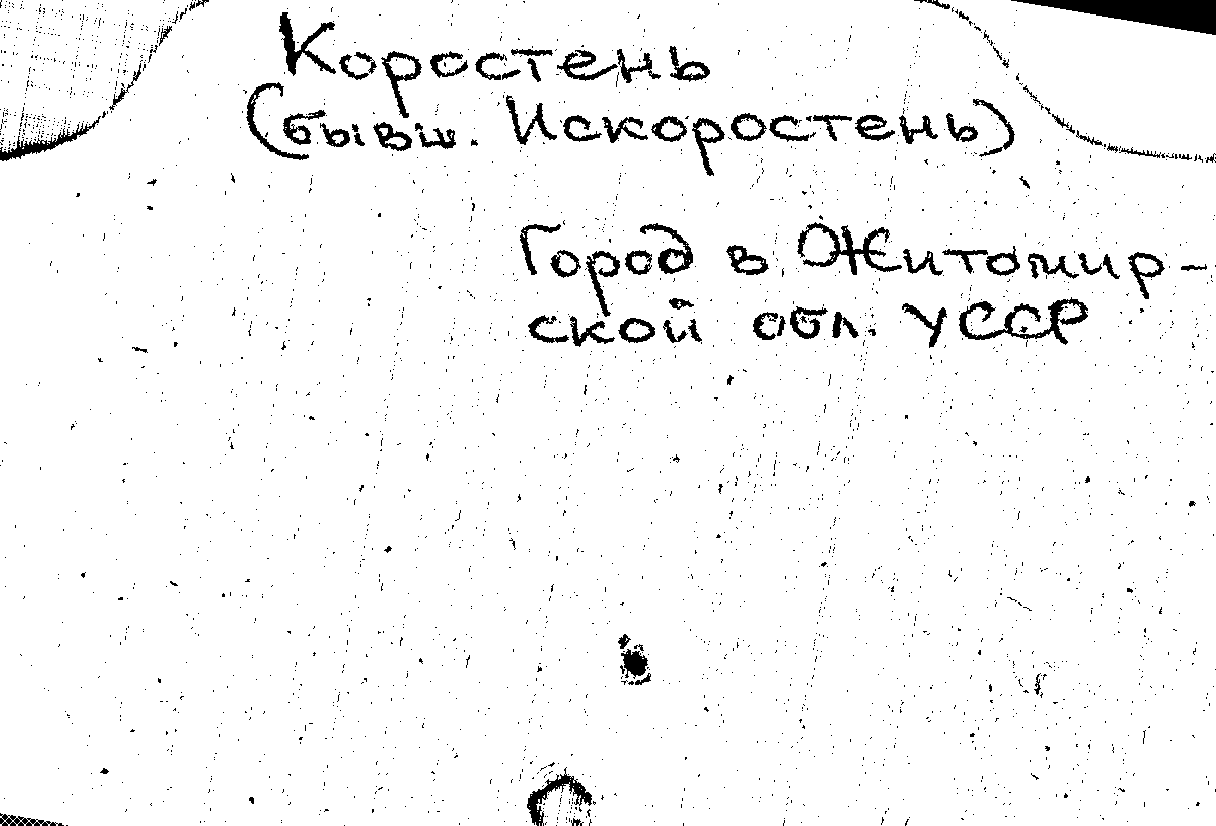 Коростень
(бывш. Искоростень)
Город в Житомир-
ской обл. УССР